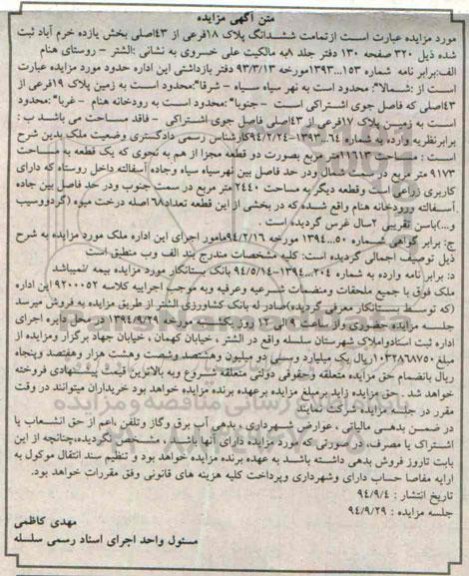 متن آگهی مزایده
مورد مزایده عبارت است از تمامت ششدانگ پلاک ۱۸فرعی از ۴۳اصلی بخش یازده خرم آباد ثبت
شده ذیل ۳۲۰ صفحه ۱۳۰ دفتر جلد ۸به مالکیت علی خسروی به نشانی :الشتر - روستای هنام
الف:برابر نامه شماره ۱۵۳...۱۳۹۳مورخه ۹۳/۳/۱۳ دفتر بازداشتی این اداره حدود مورد مزایده عبارت
است از :شمالا": محدود است به نهر سیاه سیاه - شرقا":محدود است به زمین پلاک ۱۹فرعی از
۴۳اصلی که فاصل جوی اشتراکی است - جنوبا" :محدود است به رودخانه هنام - غربا" :محدود
است به زمین پلاک ۱۷فرعی از ۴۳اصلی فاصل جوی اشتراکی - فاقد مساحت می باشد ب :
برابرنظریه وارده به شماره ۶۴...۱۳۹۳-۹۴/۲/۲۴کارشناس رسمی دادگستری وضعیت ملک بدین شرح
است : مساحت ۱۱۶۱۳متر مربع بصورت دو قطعه مجزا از هم به نحوی که یک قطعه به مساحت
۹۱۷۳ متر مربع در سمت شمال ودر حد فاصل بین نهرسیاه سیاه وجاده آسفالته داخل روستاه که دارای
کاربری زراعی است وقطعه دیگر به مساحت ۲۴۴۰ متر مربع در سمت جنوب ودر حد فاصل بین جاده
آسفالته ورودخانه هنام واقع شده که در بخشی از این قطعه تعداد۶۸ اصله درخت میوه (گردووسیب
و...)باسن تقریبی ۲سال غرس گردیده است .
ج: برابر گواهی شماره ۵۰...۱۳۹۴ مورخه ۹۴/۲/۱۶مامور اجرای این اداره ملک مورد مزایده به شرح
ذیل توصیف اجمالی گردیده است: کلیه مشخصات مندرج بند الف وب منطبق است
د: برابر نامه وارده به شماره ۲۰۴...۱۳۹۴-۹۴/۵/۱۴ بانک بستانکار مورد مزایده بیمه نمیباشد
ملک فوق با جمیع ملحقات ومنضمات شرعیه وعرفیه وبه موجب اجراییه کلاسه ۹۲۰۰۰۵۲این اداره
(که توسط بستانکار معرفی گردیده)صادر له بانک کشاورزی الشتر از طریق مزایده به فروش میرسد
جلسه مزایده حضوری واز ساعت ۹ الی ۱۲ روز یکشنبه مورخه ۱۳۹۴/۹/۲۹ در محل دایره اجرای
اداره ثبت اسنادواملاک شهرستان سلسله واقع در الشتر ، خیابان کهمان ، خیابان جهاد برگزار ومزایده از
مبلغ ۱۰۳۲۸۶۸۷۵۰ریال یک میلیارد وسی دو میلیون وهشتصد وشصت وهشت هزار وهفتصد وپنجاه
ریال بانضمام حق مزایده متعلقه وحقوقی دولتی متعلقه شروع وبه بالاترین قیمت پیشنهادی فروخته
خواهد شد . حق مزایده زاید بر مبلغ مزایده برعهده برنده مزایده خواهد بود خریداران میتوانند در وقت
مقرر در جلسه مزایده شرکت نمایند
در ضمن بدهی مالیاتی ، عوارض شهرداری ، بدهی آب برق وگاز وتلفن ،اعم از حق انشعاب یا
اشتراک یا مصرف، در صورتی که مورد مزایده دارای آنها باشد ، مشخص نگردیده،چنانچه از این
بابت تاروز فروش بدهی داشته باشد به عهده برنده مزایده خواهد بود و تنظیم سند انتقال موکول به
ارایه مفاصا حساب دارای وشهرداری وپرداخت کلیه هزینه های قانونی وفق مقررات خواهد بود.
تاریخ انتشار : ۹۴/۹/۴
جلسه مزایده : ۹۴/۹/۲۹
مهدی کاظمی
مسئول واحد اجرای اسناد رسمی سلسله